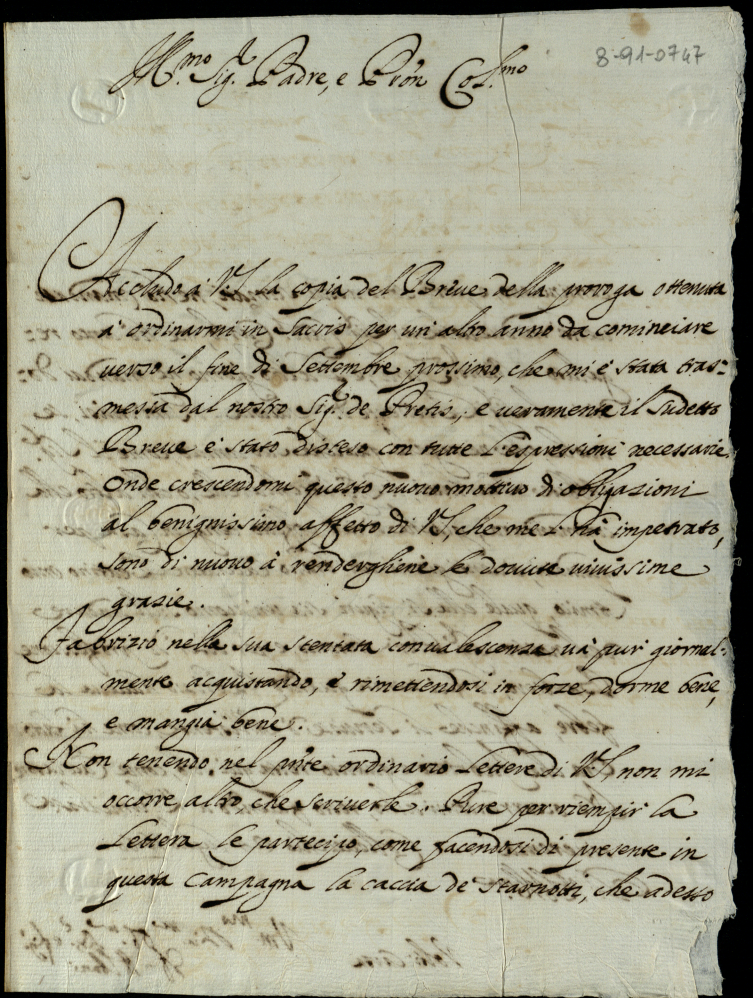 8-91-0747
Ill.mo Sig.r Padre, e Prōn Col.mo
Accludo à VS la copia del Breue della proroga ottenuta
à ordinarmi in Sacris per un' altro anno da cominciare
uerso il fine di Settembre prossimo, che mi è stata tras=
messa dal nostro Sig.r de Pretis, e ueramente il sudetto
Breue è stato disteso con tutte l'espressioni necessarie.
Onde crescendomi questo nuouo mottiuo di obligazioni
al benignissimo affetto di VS, che me l'hà impetrato,
sono di nuouo à renderghene le douute uiuissime
grazie.
Fabrizio nella sua stentata conualescenza uà pur giornal=
mente acquistando, e rimettendosi in forze, dorme bene,
e mangia bene.
Non tenendo nel pn̄te ordinario Lettere di VS, non mi
occorre altro che scriuerle. Pure per riempir la
Lettera le partecipo, come facendosi di presente in
questa Campagna la caccia de' starnotti, che adesso